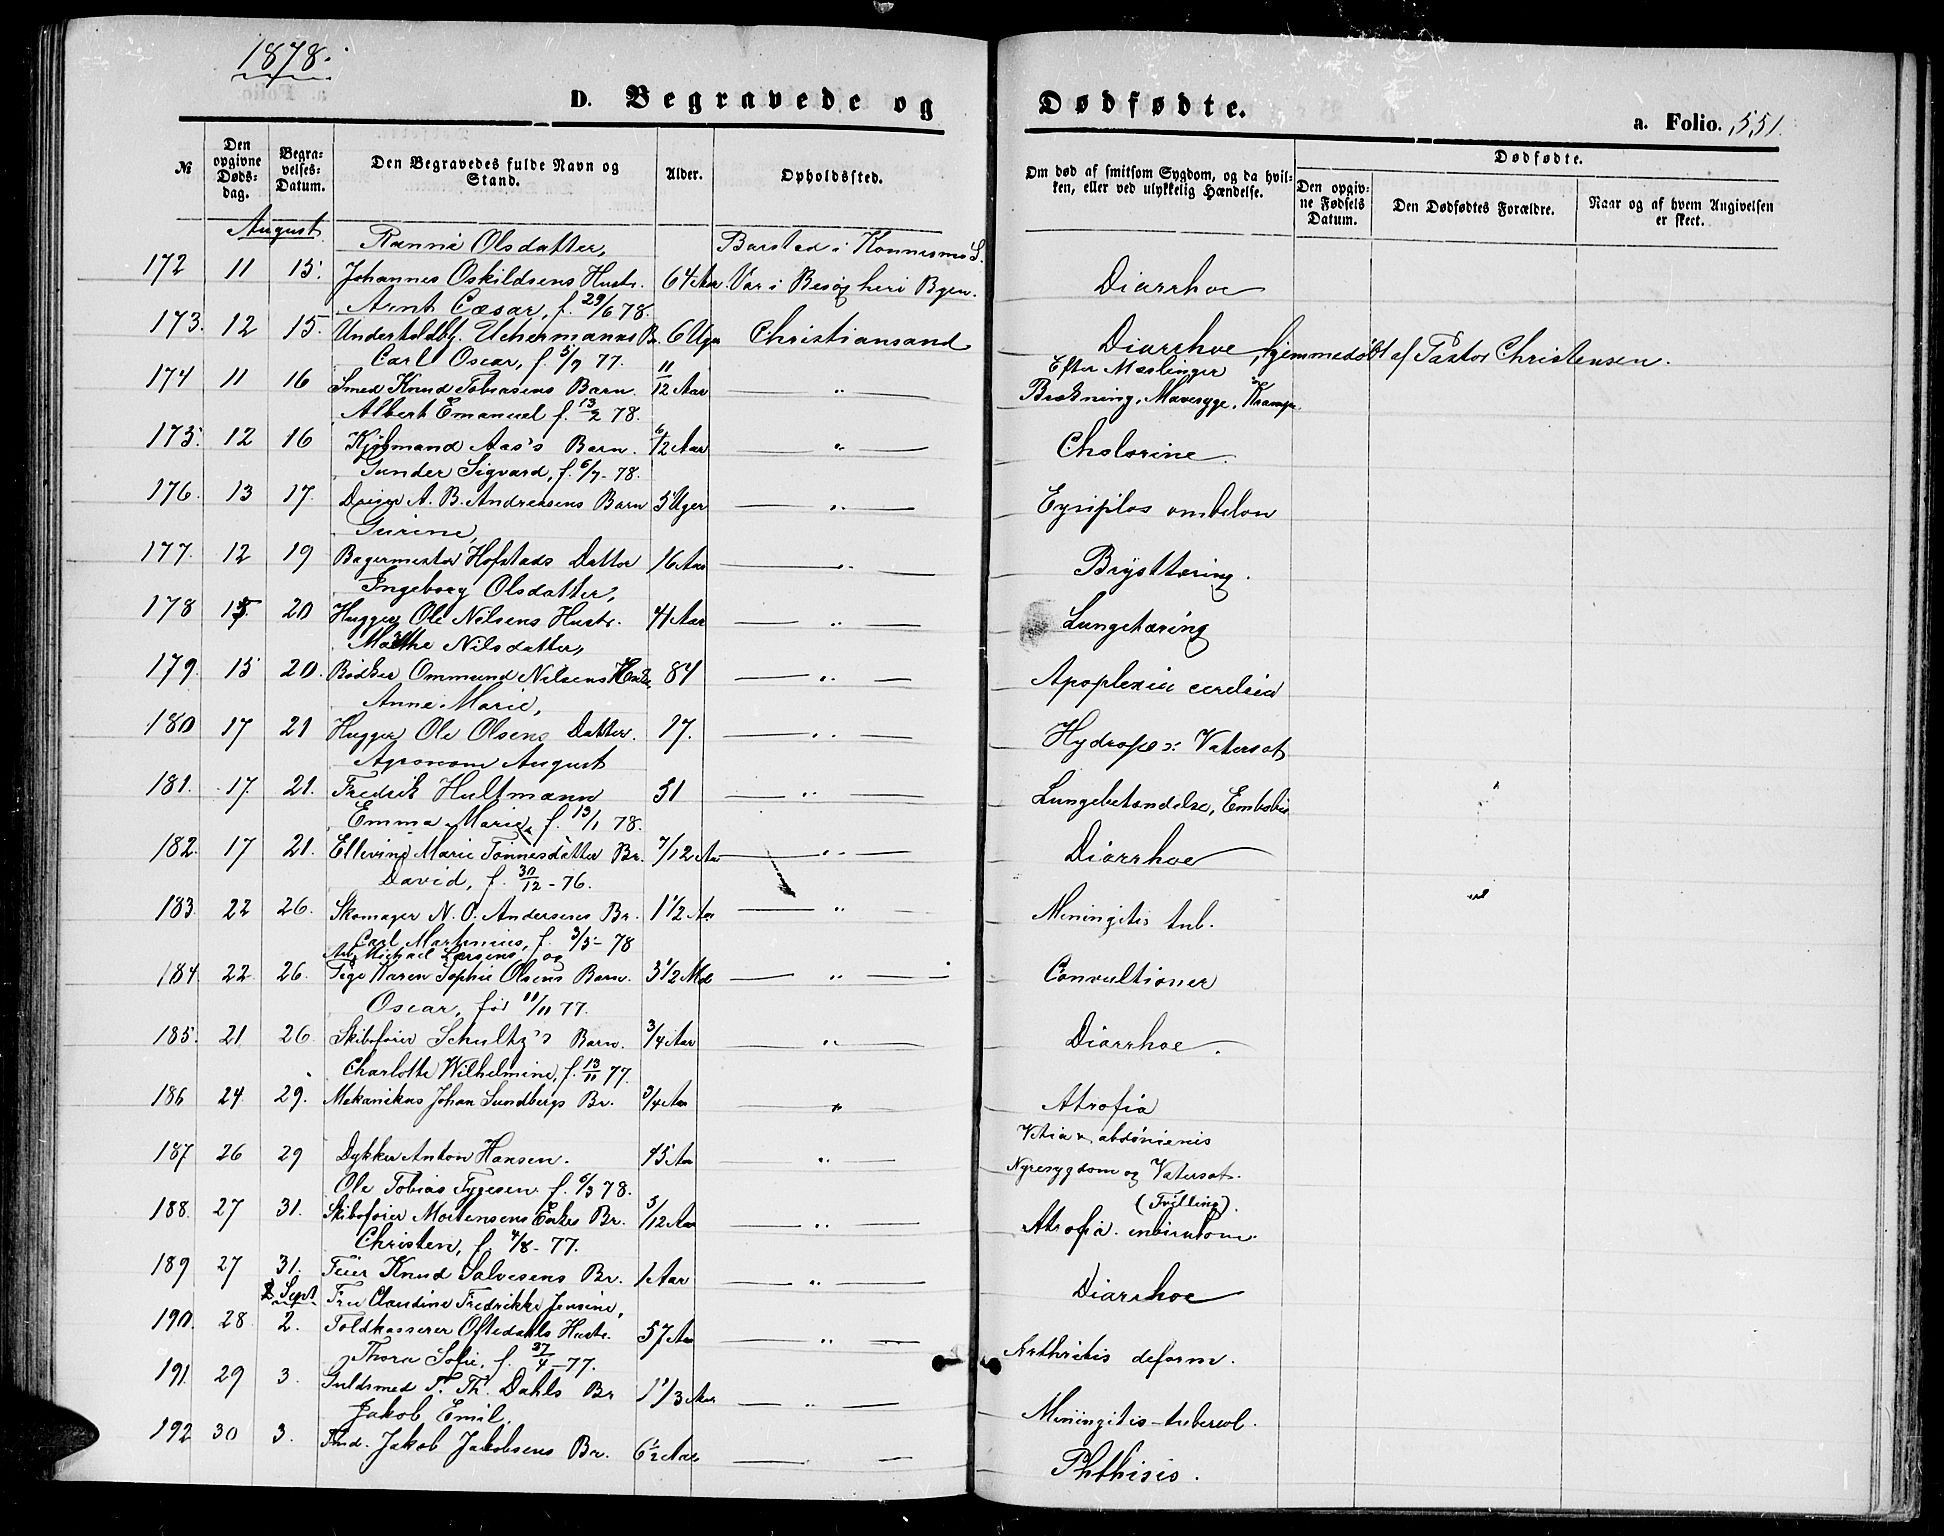 1878.
D. Begravede og Dødfødte.
a. Folio. 551.
№
Den opgivne Døds-dag.
Begra-velses-Datum.
Den Begravedes fulde Navn og Stand.
Alder.
Opholdssted.
Om død af smitsom Sygdom, og da hvil-ken, eller ved ulykkelig Hændelse.
Dødfødte.
Den opgiv-ne Fødsels Datum.
Den Dødfødtes Forældre.
Naar og af hvem Angivelsen er skeet.
August
Olsdatter, Barstad i Konnesmo S.
172 11 15. Johannes Oskildsens Hustr. 64 Aar Var i Besøg her i Byen. Diarrhoe
Arnt Cæsar, f. 29/6 78.
173. 12 15. Undertoldbtj. Uchermanns Br. 6 Uger Christiansand Diarrhoe, hjemmedøbt af Pastor Christensen.
Carl Oscar, f. 5/9 77. Efter Mæslinger
174 11 16 Smed Knud Tobiasens Barn. 11/12 Aar " Brækning, Mavesyge, Krampe
Albert Emanuel f. 13/2 78.
175. 12 16 Kjøbmand Aas's Barn. 6/12 Aar " Cholerine.
Gunder Sigvard, f. 6/7 - 78.
176. 13 17. A. B. Andreasens Barn 5 Uger "
Gurine,
177. 12 19 Bagermester Hofstads Datter 16 Aar " Brysttæring.
Ingeborg Olsdatter,
178 15 20 Hugger Ole Nilsens Hustr. 41 Aar " Lungetæring
Nilsdatter,
179. 15 20. Bødker Ommund Nilsens Enke 84 " Apoplexia
Anne Marie,
180 17 21 Hugger Ole Olsens Datter. 17. " Hydrops: Vatersot
Agronom August
181. 17 21. Fredrik Hultmann 31 " Lungebetændelse, Emboli
Emma Marie, f. 13/1 78.
182. 17 21. Ellevine Marie Tønnesdatter Br. 7/12 Aar " Diarrhoe
David, f. 30/12 - 76.
183. 22 26. Skomager N. O. Andersens Br. 1 1/2 Aar " Miningitis tub.
Carl Martinius, f. 3/5 - 78
Arb. Michael Larsens og
184. 22. 26. Pige Karen Sophie Olsens Barn. 3 1/2 Md " Convultioner
Oscar, fød 11/11 77.
185. 21 26. Skibsfører Schultz's Barn. 3/4 Aar " Diarrhoe.
Charlotte Wilhelmine, f. 13/11 77.
186 24. 29. Mekanikus Johan Sundbergs Br. 3/4 Aar " Atrofia
187 26 29 Dykker Anton Hansen. 45 Aar " Nyresygdom og Vatersot.
Ole Tobias Tygesen f. 6/3 78. (Tvilling).
188. 27 31. Skibsfører Mortensens Enkes Br. 5/12 Aar " Atrofia
Christen, f. 4/8 - 77.
189 27 31. Feier Knud Salvesens Br. 1 Aar " Diarrhoe
Sept. Fru Claudine Fredrikke Jensine,
190. 28. 2. Toldkasserer Oftedahls Hustr. 57 Aar " Arthritis deform.
Thora Sofie, f. 27/4 - 77.
191. 29 3. Guldsmed T. Th. Dahls Br 1 1/3 Aar " Miningitis - tubercol.
Jakob Emil,
192 30 3. Jakob Jakobsens Br. 6 1/2 Aar Phthisis.